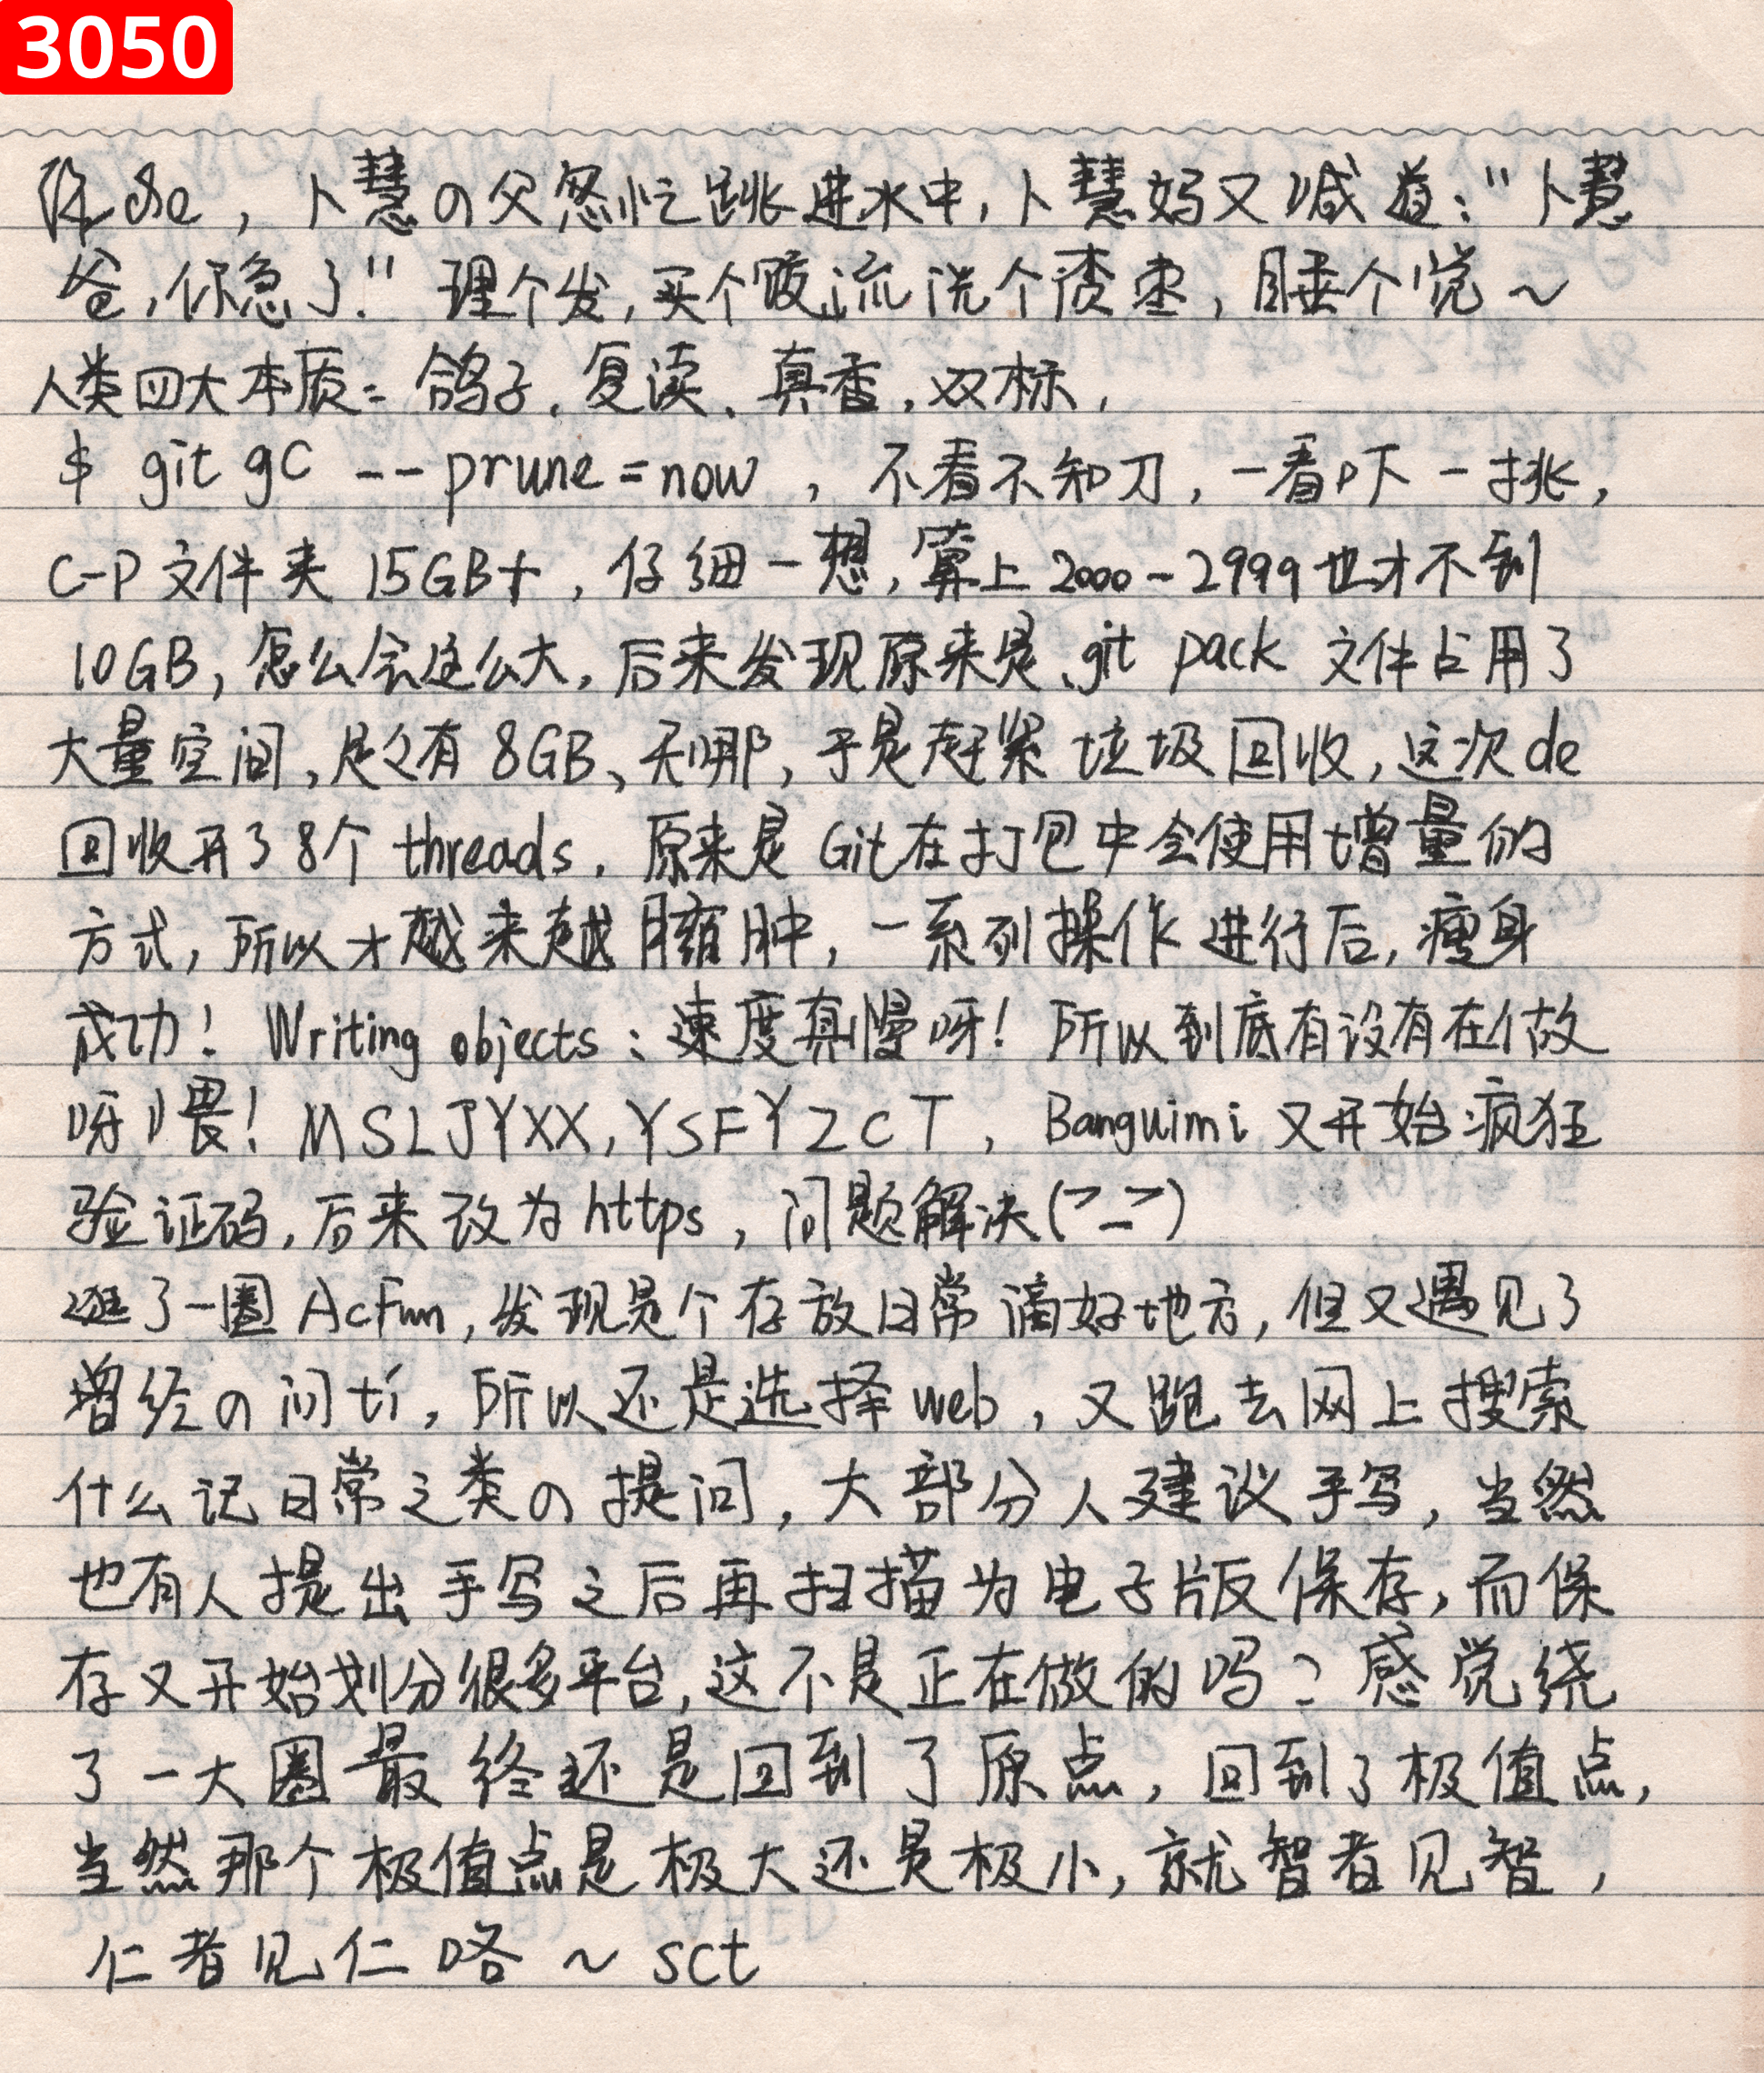 3050
卜慧の父忽忙跳进水中,卜慧妈又喊道:"卜慧
爸,你急了!" 理个发,买个饭,流洗个枣,睡个觉~
人类四大本质:鸽子、复读、真香,双标,
$ git gc --prune=now,不看不知刀,一看吓一挑,
C-P文件夹15GB+,仔细一想,算上2000-2999也才不到
10GB,怎么会这么大,后来发现原来是.git pack 文件占用了
大量空间,足足有8GB、天哪,于是赶紧垃圾回收,这次de
回收开了8个threads.原来是Git在打包中会使用增量的
方式,所以才越来越臃肿,一系列操作进行后,瘦身
成功! Writing objects:速度真慢呀!所以到底有没有在做
呀喂!MSLJYXX,YSFYZCT,Banguimi又开始疯狂
验证码,后来改为https,问题解决(>_>)
逛了一圈AcFun,发现是个存放日常滴好地方,但又遇见了
增经の问ti,所以还是选择web,又跑去网上搜索
什么记日常之类の提问,大部分人建议手写,当然
也有人提出手写之后再扫描为电子版保存,而保
存又开始划分很多平台,这不是正在做的吗?感觉绕
了一大圈最终还是回到了原点,回到了极值点,
当然那个极值点是极大还是极小,就智者见智,
仁者见仁咯~sct